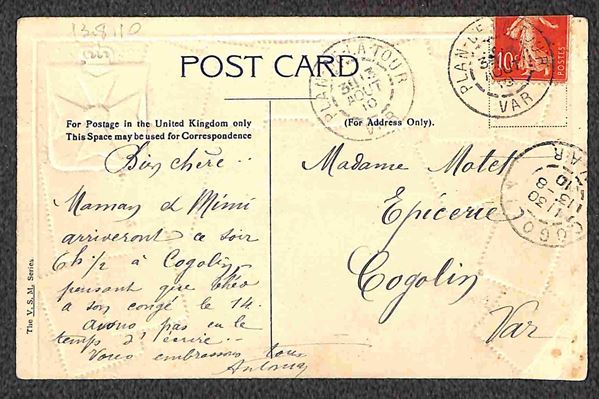 13.8.10
POST CARD
For Postage in the United Kingdom only
This Space may be used for Correspondence
(For Address Only).
Bien chère..
Maman et Mimi
arriveront ce soir
6h 1/2 à Cogolin
pensant que Théo
a son congé le 14.
avons pas eu le
temps d'écrire..
Vous embrassons tous
Madame Motet
Epicerie
Cogolin
Var
The V. S. M. Series.
PLAN-DE-LA-TOUR
AOUT
10
VAR
10
POSTES
PLAN-DE
VAR
COGOLIN
VAR
11 30
13-8
10